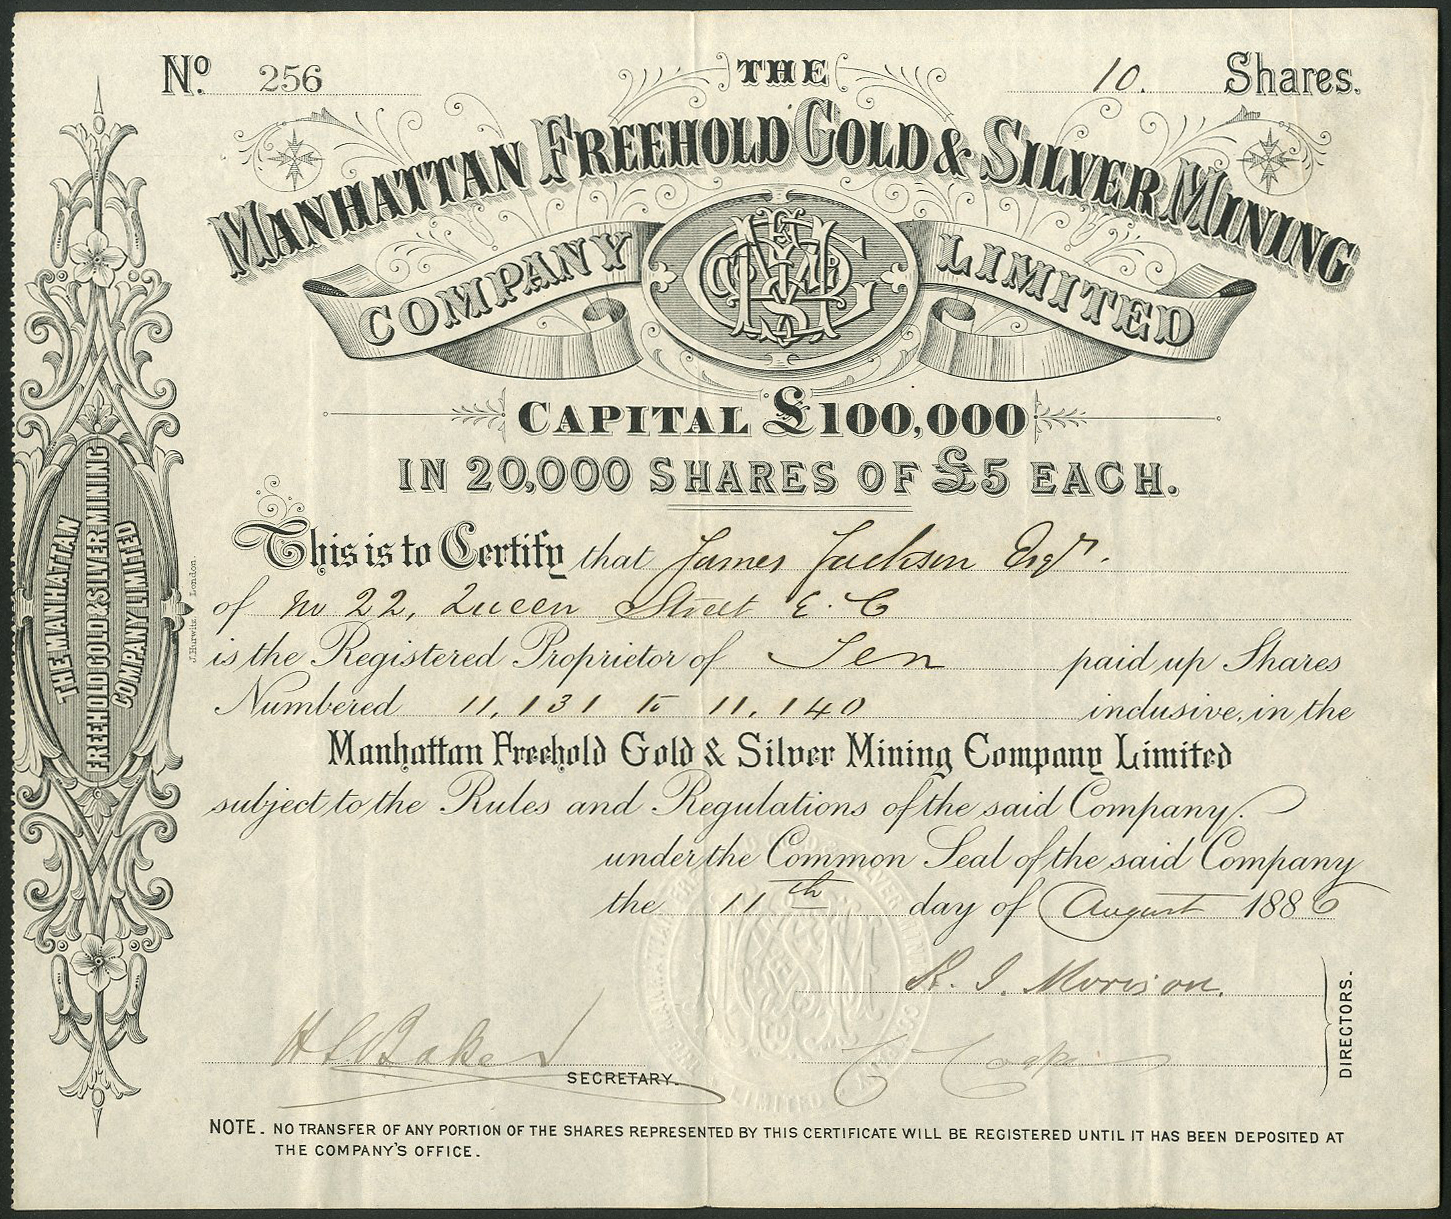 No. 256
10. Shares.
THE
MANHATTAN FREEHOLD GOLD & SILVER MINING
COMPANY LIMITED
CAPITAL £100,000
IN 20,000 SHARES OF £5 EACH.
This is to Certify that James Jackson Esqr.
of No 22, Queen Street E.C
is the Registered Proprietor of Ten paid up Shares
Numbered 11,131 to 11,140 inclusive, in the
Manhattan Freehold Gold & Silver Mining Company Limited
subject to the Rules and Regulations of the said Company.
under the Common Seal of the said Company
the 11th day of August 1886
Morison
DIRECTORS.
H Baker
SECRETARY.
NOTE. NO TRANSFER OF ANY PORTION OF THE SHARES REPRESENTED BY THIS CERTIFICATE WILL BE REGISTERED UNTIL IT HAS BEEN DEPOSITED AT
THE COMPANY'S OFFICE.
THE MANHATTAN
FREEHOLD GOLD & SILVER MINING
COMPANY LIMITED
J. Hurwitz. London.